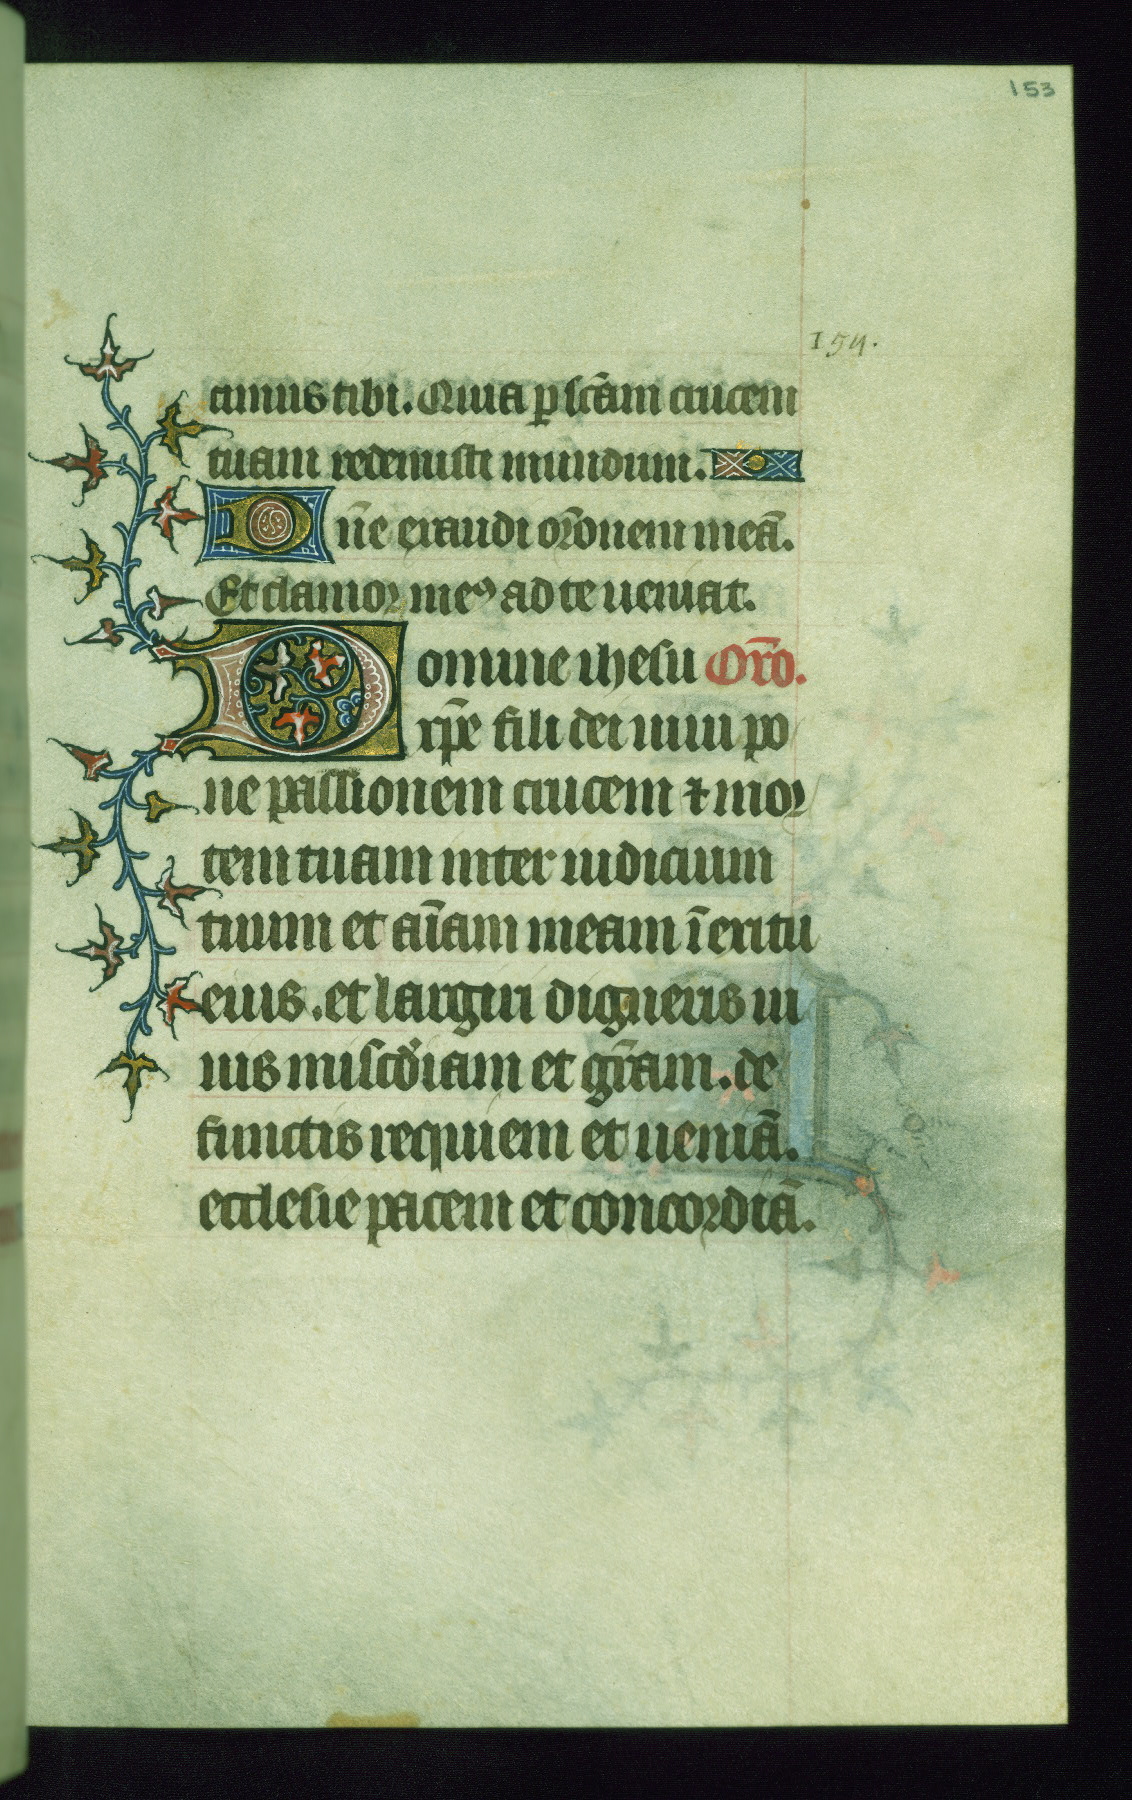 153
154.
cimus tibi. Quia p scām crucem
tuam redemisti mundum.
Dn̄e exaudi or̄onem meā.
Et clamor meꝰ ad te ueniat.
Domine ihesu Or̄o.
xp̄e fili dei uiui po
ne passionem crucem ⁊ mor
tem tuam inter iudicium
tuum et aīam meam ī exitu
eius. et largiri digneris ui
uis misc̄diam et gr̄am. de
functis requiem et ueniā.
ecclesie pacem et concordiā.